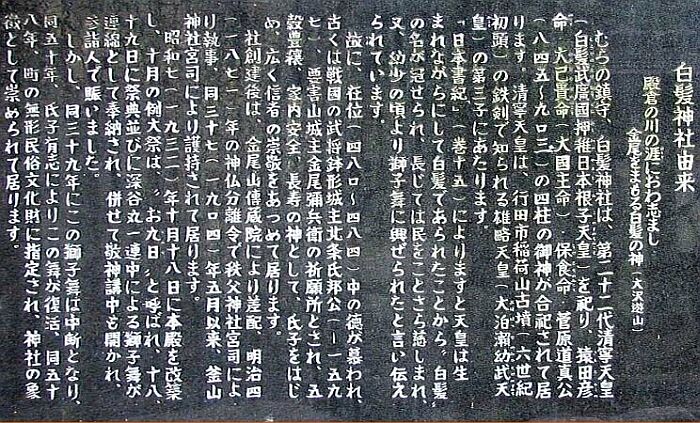 白髪神社由来
殿倉の川の涯におわしまし
金尾をまもる白髪の神(大沢遊山)
むらの鎮守、白髪神社は、第二十二代清寧天皇
(白髪武広国押稚日本根子天皇)を祀り、猿田彦
命、大己貴命(大国主命)保食命、菅原道真公
(八四五〜九〇三)の四柱の御神が合祀されて居
ります。清寧天皇は、行田市稲荷山古墳(六世紀
初頭)の鉄剣で知られる雄略天皇(大泊瀬幼武天
皇)の第三子にあたります。
「日本書紀」(巻十五)によりますと天皇は生
まれながらにして白髪であられたことから〝白髪〟
の名が冠せられ、長じては民をことさら慈しまれ、
又、幼少の頃より獅子舞に興ぜられたと言い伝え
られています。
故に、在位(四八〇〜四八四)中の徳が慕われ、
古くは戦国の武将鉢形城主北条氏邦公(ー一五九
七)、要害山城主金尾弥兵衛の祈願所とされ、五
穀豊穣、家内安全、長寿の神として、氏子をはじ
め、広く信者の崇敬をあつめて居ります。
社創建後は、金尾山傳蔵院により差配、明治四
(一八七一)年の神仏分離令で秩父神社宮司によ
り執事、同三十七(一九〇四)年五月以来、釜山
神社宮司により護持されて居ります。
昭和七(一九三二)年十月十八日に本殿を改築
し、十月の例大祭は、〝お九日〟と呼ばれ、十八、
十九日に祭典並びに深谷丸一連中による獅子舞が
連綿として奉納され、併せて敬神講中も開かれ、
参詣人で賑いました。
しかし、同三十九年にこの獅子舞は中断となり、
同五十年、氏子有志によりこの舞が復活、同五十
八年、町の無形民俗文化財に指定され、神社の象
徴として崇められて居ります。